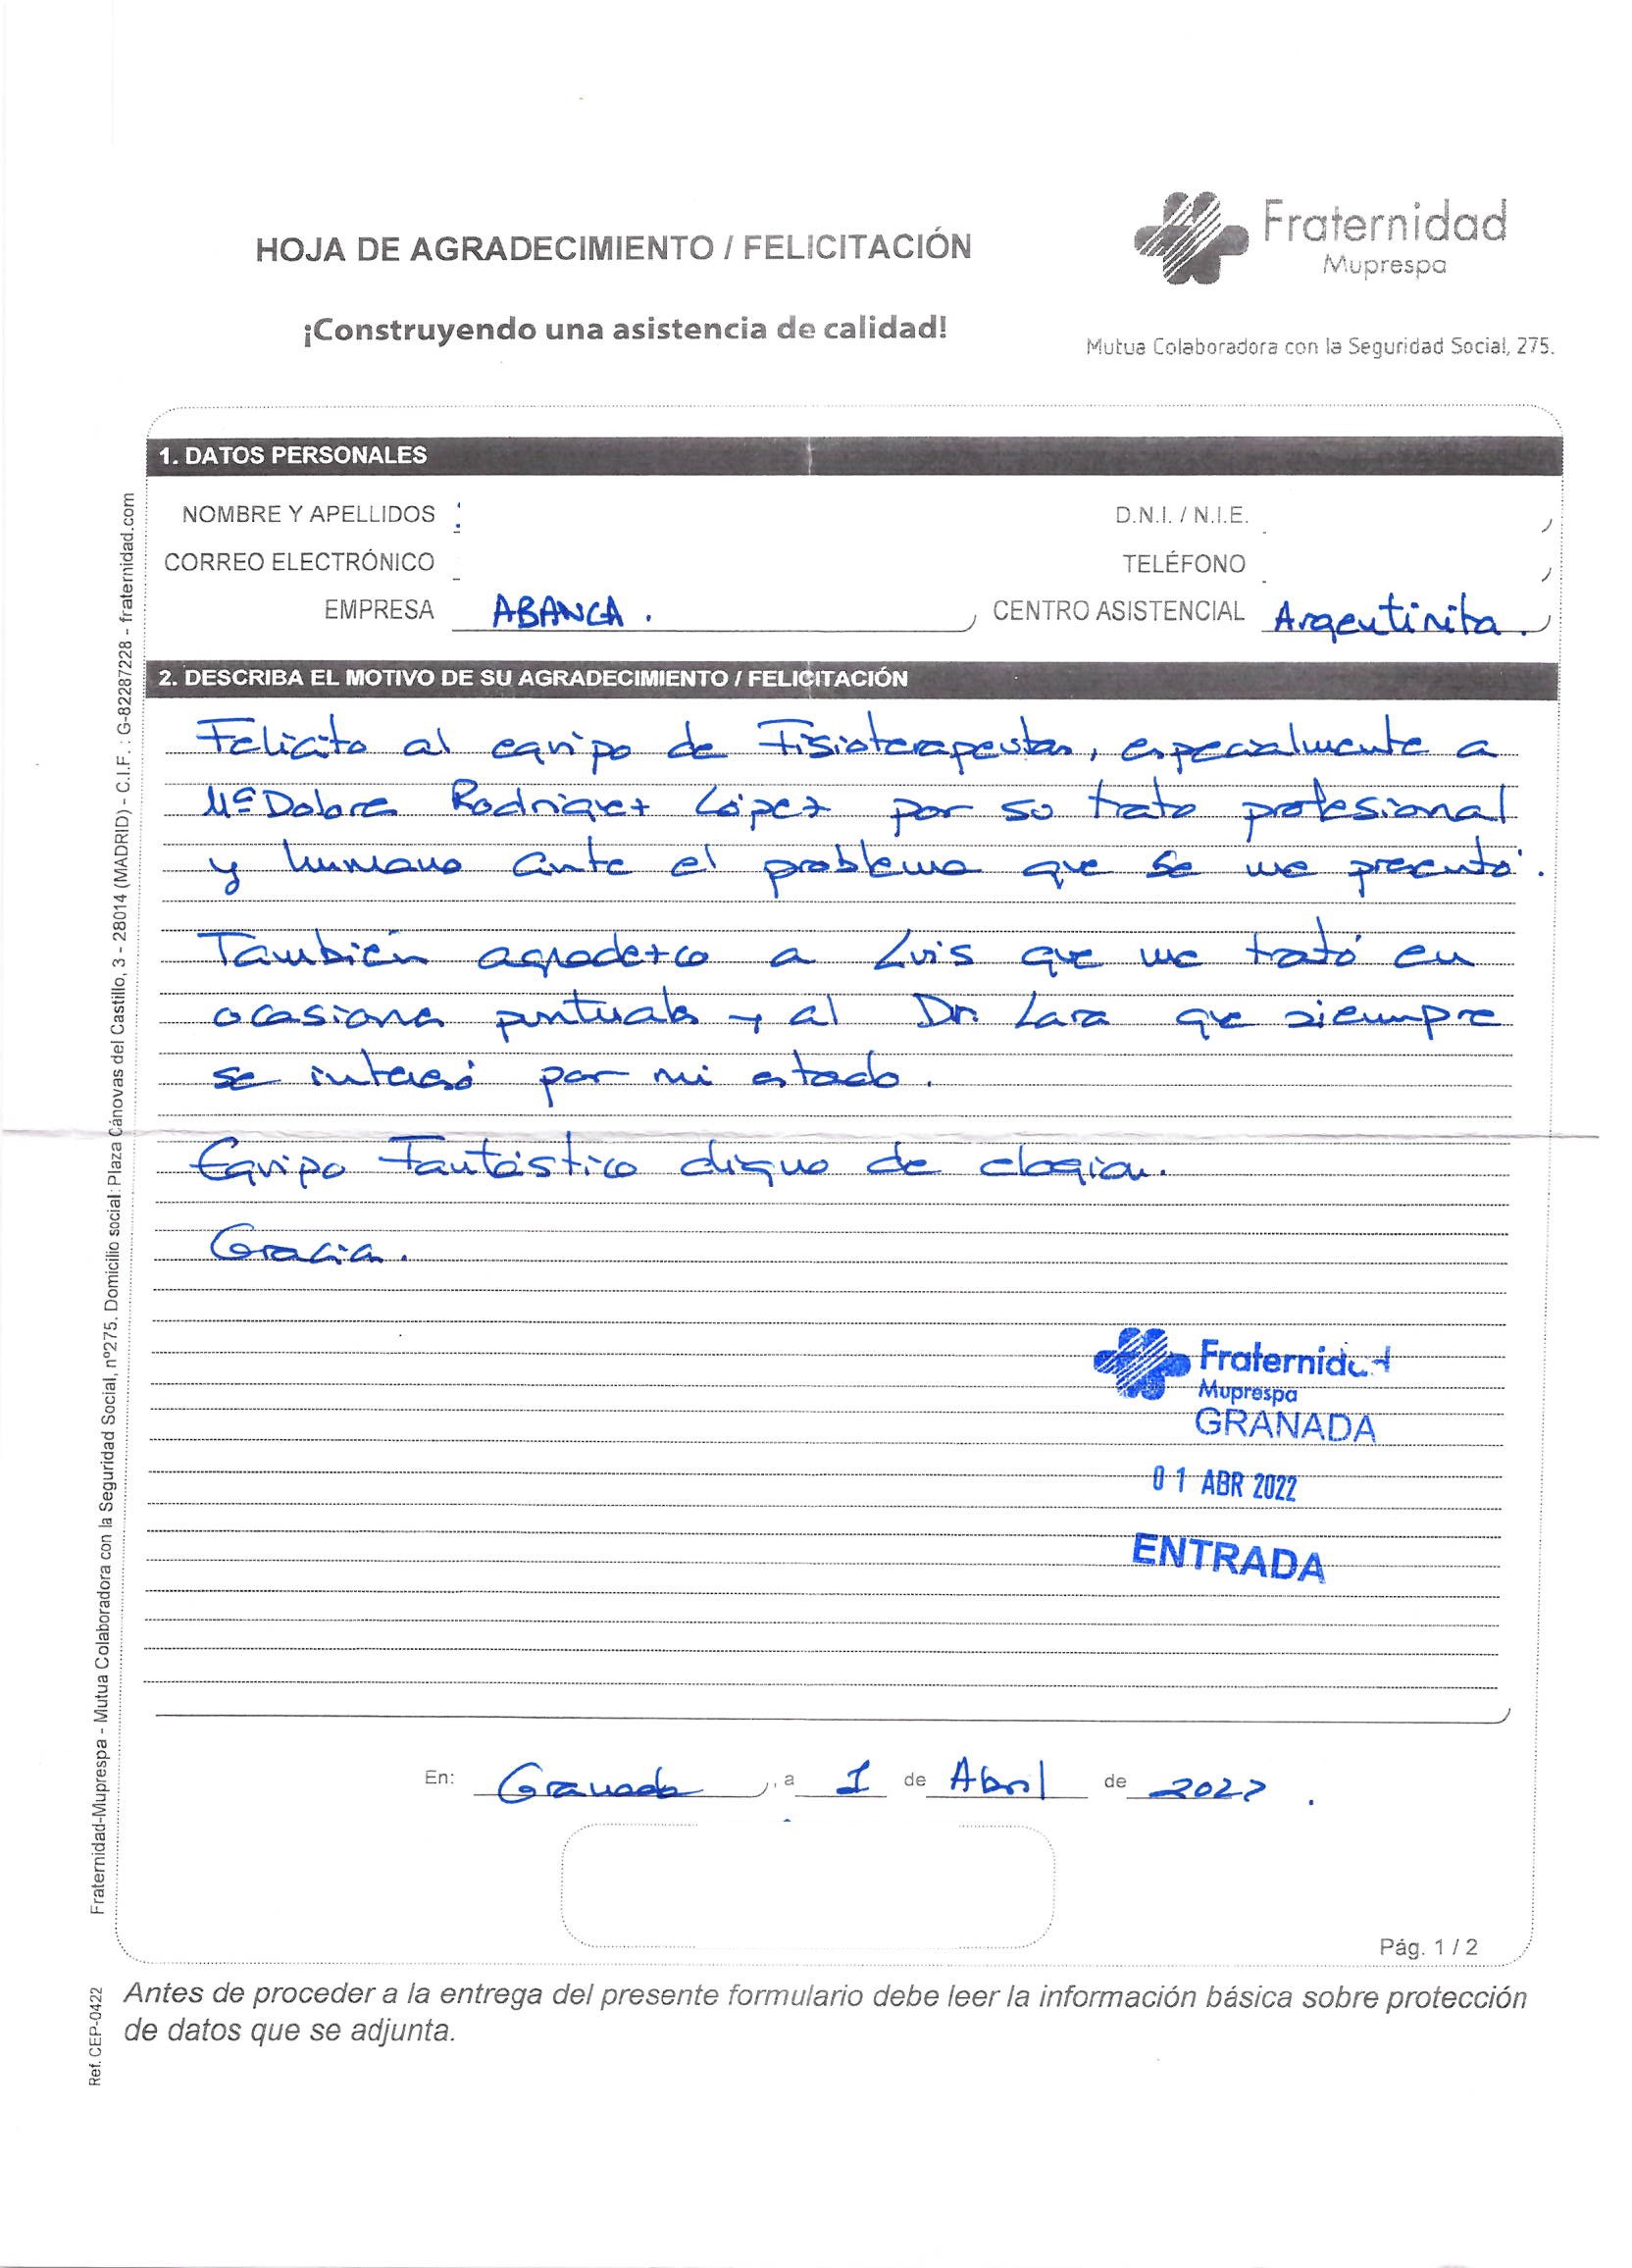 HOJA DE AGRADECIMIENTO / FELICITACIÓN
¡Construyendo una asistencia de calidad!
Fraternidad
Muprespa
Mutua Colaboradora con la Seguridad Social, 275.
1. DATOS PERSONALES
NOMBRE Y APELLIDOS
D.N.I. / N.I.E.
CORREO ELECTRÓNICO
TELÉFONO
EMPRESA ABANCA.
CENTRO ASISTENCIAL Argentinita.
2. DESCRIBA EL MOTIVO DE SU AGRADECIMIENTO / FELICITACIÓN
Felicito al equipo de Fisioterapeutas, especialmente a
Mª Dolores Rodriguez López por su trato profesional
y humano ante el problema que se me presentó.
También agradezco a Luis que me trató en
ocasiones puntuales y al Dr. Lara que siempre
se interesó por mi estado.
Equipo Fantástico digno de elogios.
Gracias.
Fraternidad
Muprespa
GRANADA
01 ABR 2022
ENTRADA
En: Granada, a 1 de Abril de 2022.
Pág. 1 / 2
Antes de proceder a la entrega del presente formulario debe leer la información básica sobre protección
de datos que se adjunta.
Fraternidad-Muprespa - Mutua Colaboradora con la Seguridad Social, nº275. Domicilio social: Plaza Cánovas del Castillo, 3 - 28014 (MADRID) - C.I.F. : G-82287228 - fraternidad.com
Ref. CEP-0422